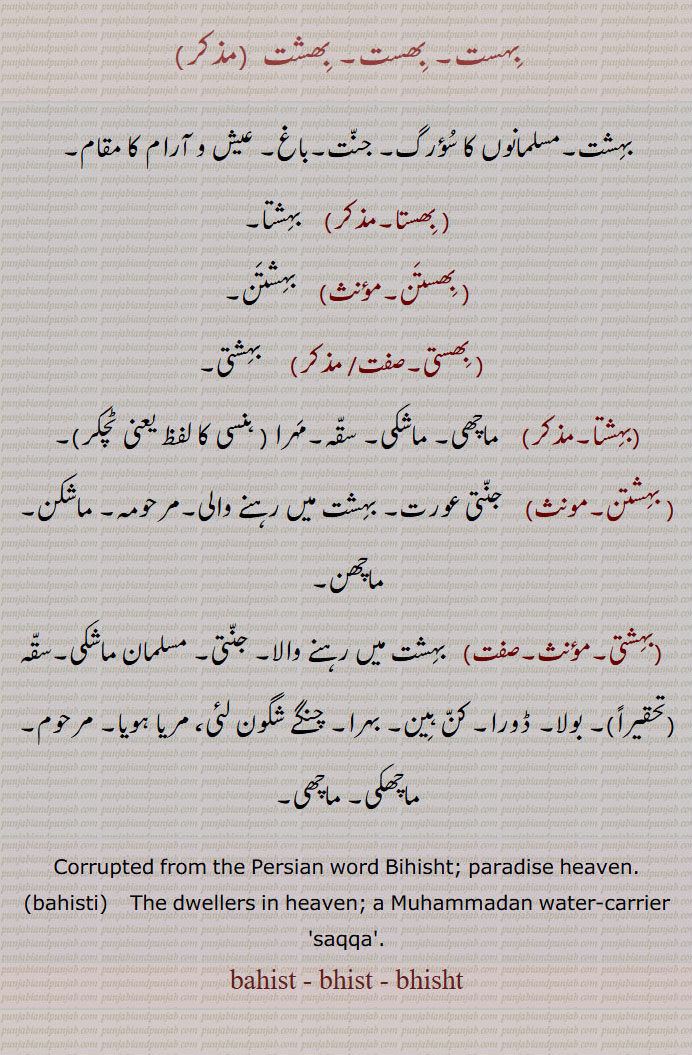 بِہست۔ بِھست۔ بِھشت (مذکر)
بہِشت۔مسلمانوں کا سُؤرگ۔ جنّت۔باغ۔ عیش و آرام کا مقام۔
(بِھستا۔مذکر) بہِشتا۔
(بِھستَن۔مؤنث) بہِشتَن۔
(بِھستی۔صفت/ مذکر) بہِشتی۔
(بہِشتا۔مذکر) ماچھی۔ ماشکی۔ سقّہ۔مَہرا (ہنسی کا لفظ یعنی ٹچکر)۔
(بہِشتن۔مونث) جنّتی عورت۔ بہشت میں رہنے والی۔مرحومہ۔ ماشکن۔
ماچھن۔
(بہِشتی۔مؤنث۔صفت) بہِشت میں رہنے والا۔ جنّتی۔ مسلمان ماشکی۔سقّہ
(تحقیراً)۔ بولا۔ ڈورا۔ کنّ ہِین۔ بہرا۔ چنگے شگون لئی، مریا ہویا۔ مرحوم۔
ماچھکی۔ ماچھی۔
Corrupted from the Persian word Bihisht; paradise heaven.
(bahisti) The dwellers in heaven; a Muhammadan water-carrier
'saqqa'.
bahist - bhist - bhisht